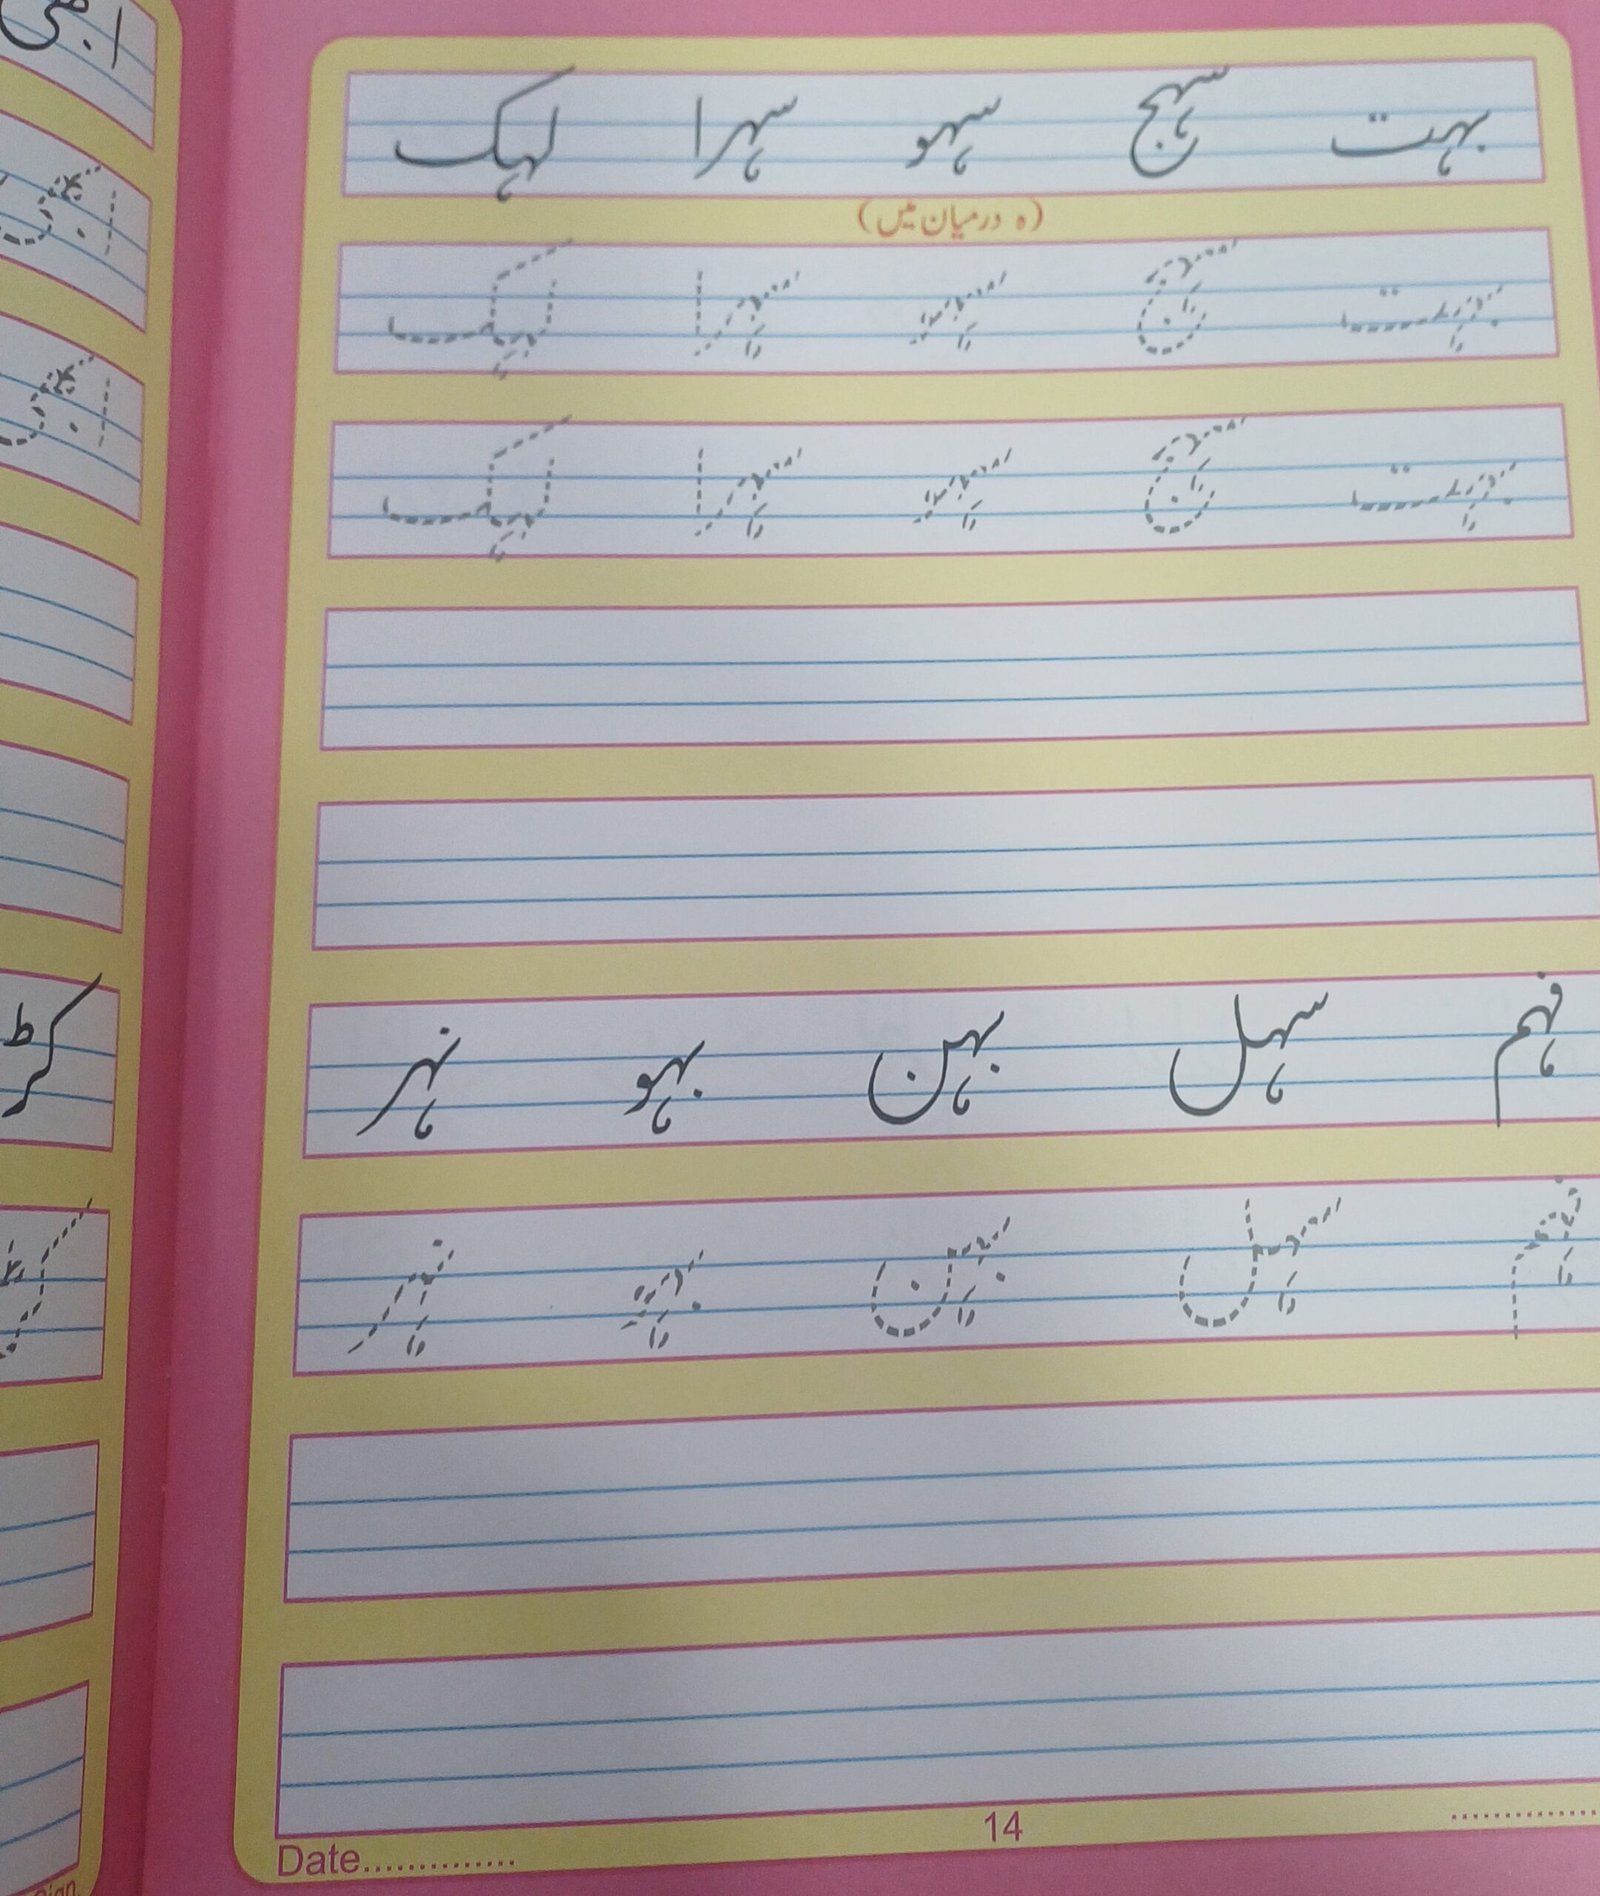 بہت سہج سہو سہرا لہک
(ہ درمیان میں)
بہت سہج سہو سہرا لہک
بہت سہج سہو سہرا لہک
فہم سہل بہن بہو نہر
فہم سہل بہن بہو نہر
14
Date..............